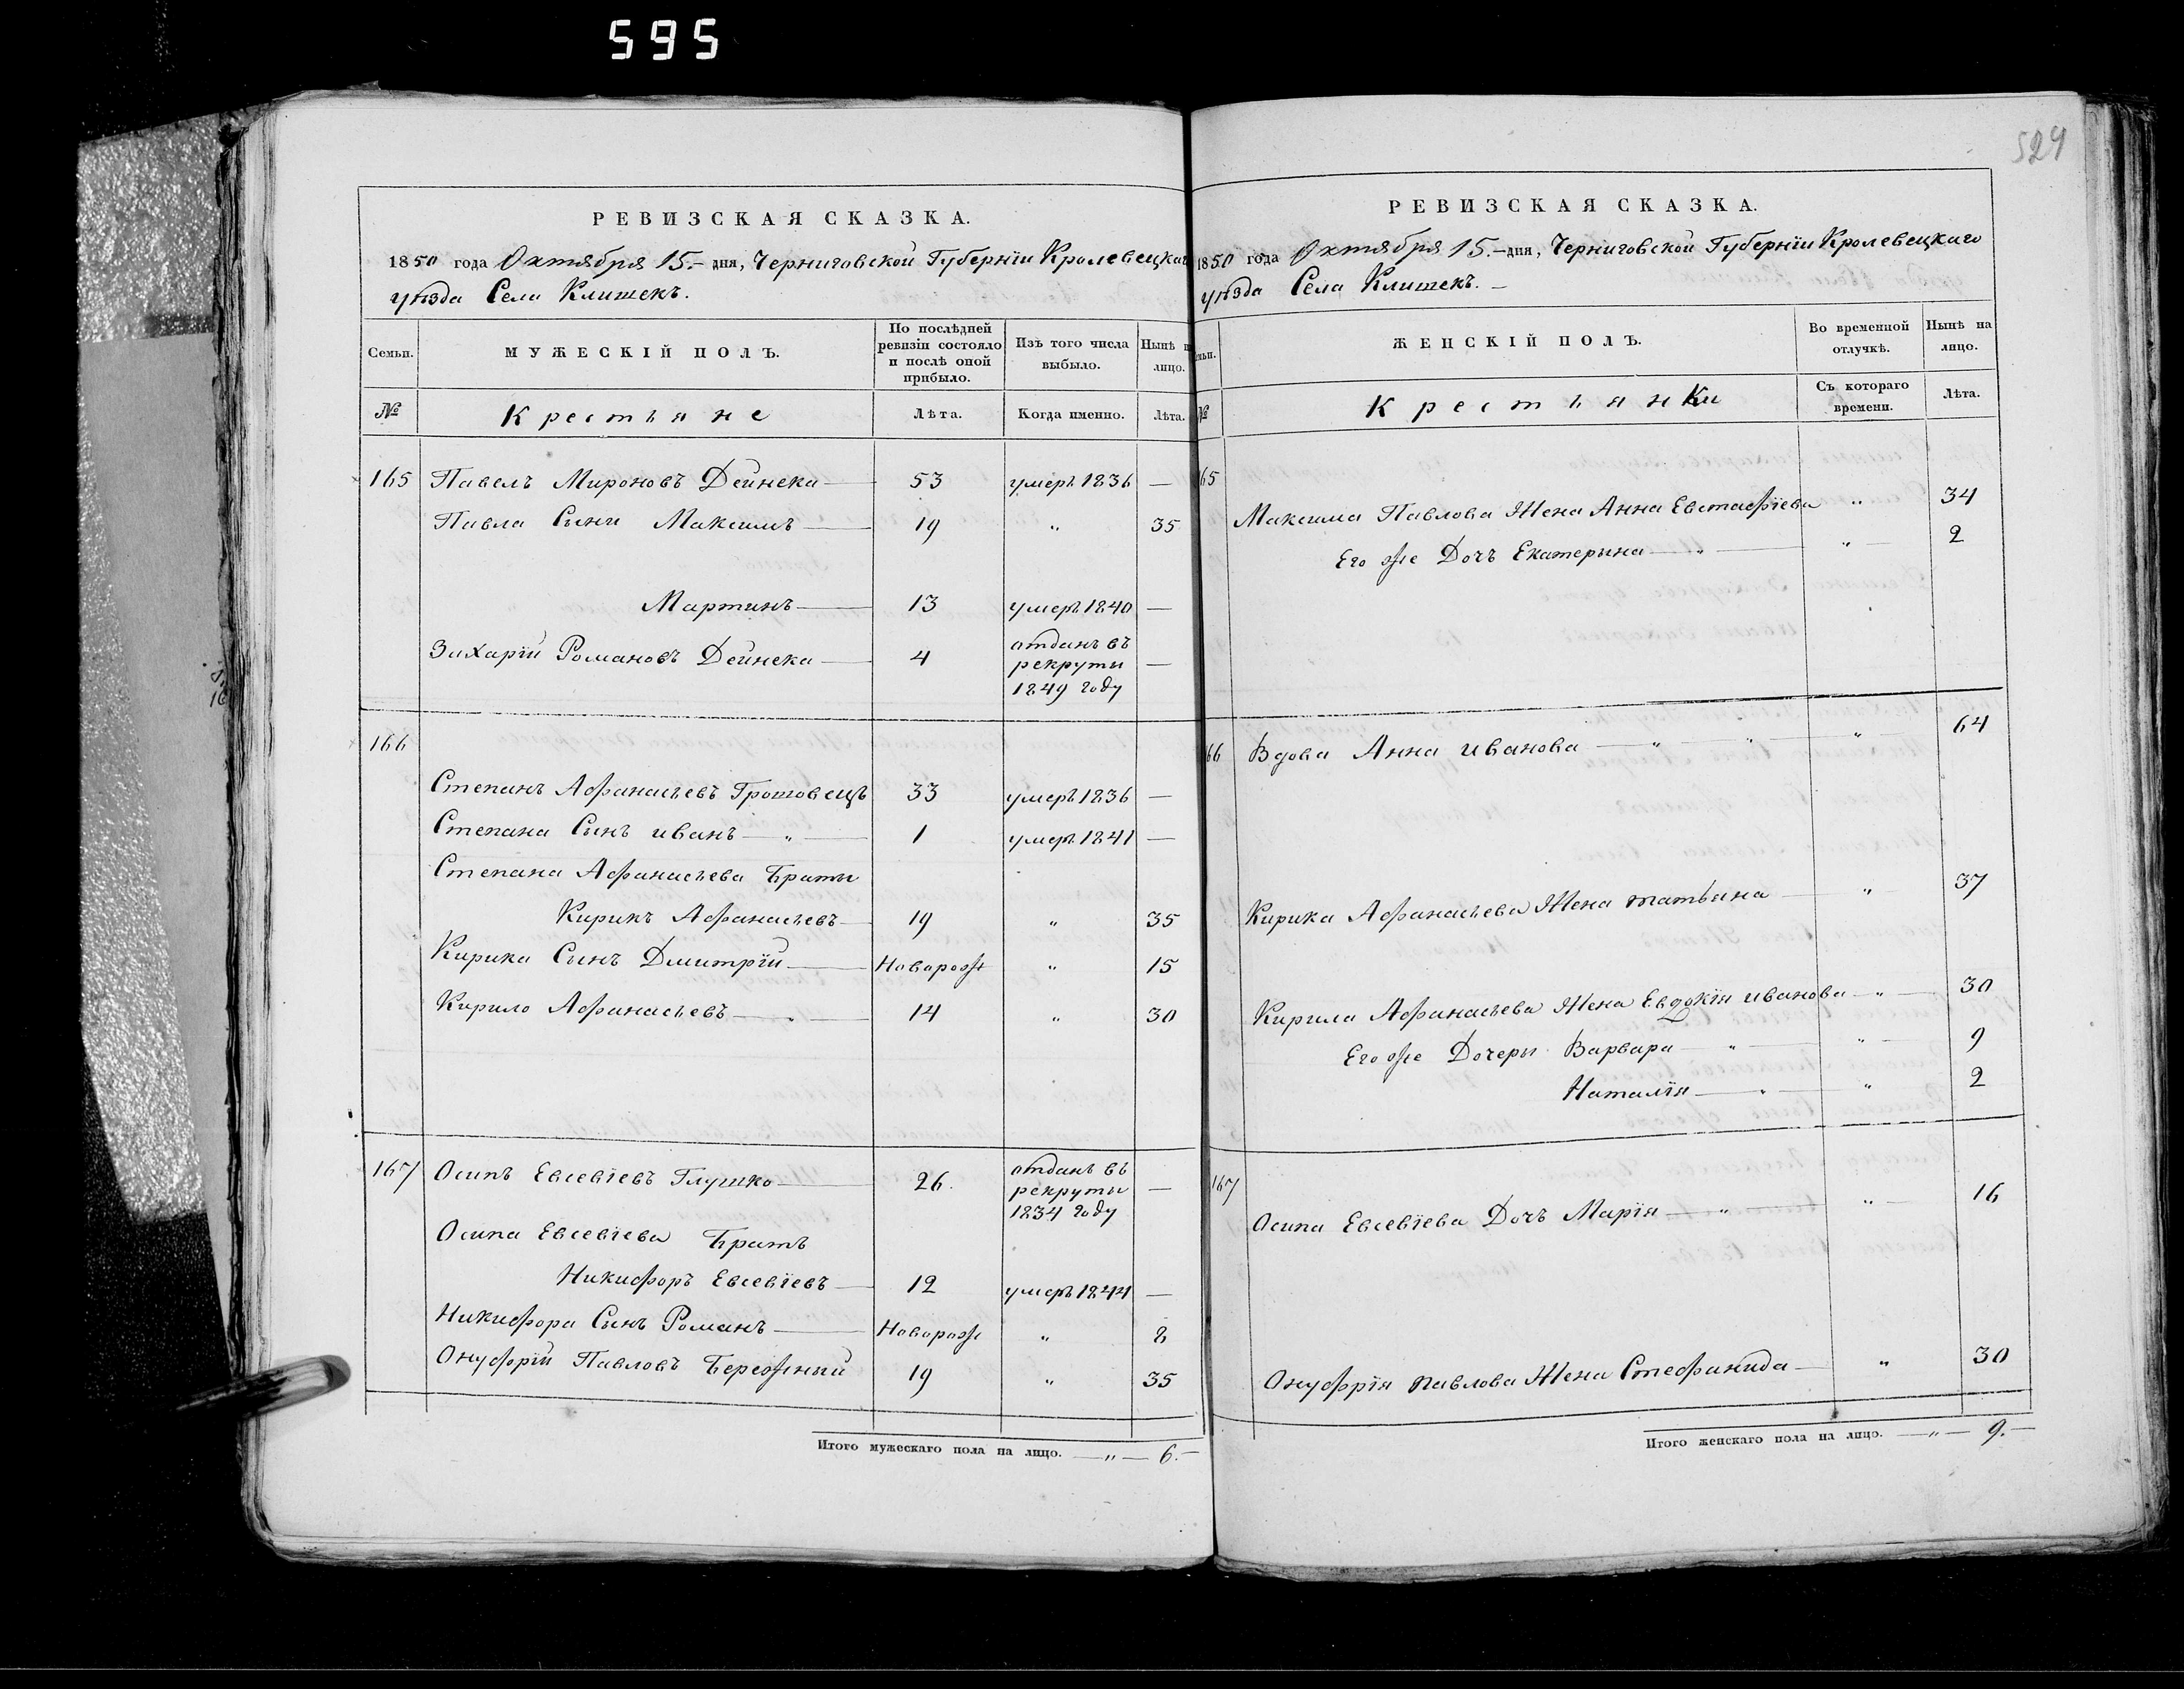 595
524
РЕВИЗСКАЯ СКАЗКА.
1850 года Октября 15.- дня, Черниговской Губерніи Кролевецкаго
уѣзда Села Клишекъ.
Семьи.
МУЖЕСКІЙ ПОЛЪ.
По послѣдней ревизіи состояло и послѣ оной прибыло.
Изъ того числа выбыло.
Нынѣ на лицо.
№ Крестьяне Лѣта. Когда именно. Лѣта.
165 Павелъ Мироновъ Дейнека — 53 умеръ 1836 —
Павла Сыни Максимъ — 19 „ 35
Мартинъ — 13 умеръ 1840 —
Захарій Романовъ Дейнека — 4 отданъ въ рекруты 1849 году —
166
Степанъ Афанасьевъ Грошовецъ 33 умеръ 1836 —
Степана Сынъ иванъ — „ — 1 умеръ 1841 —
Степана Афанасьева Браты
Кирикъ Афанасьевъ — 19 „ 35
Кирика Сынъ Дмитрій — Наворож „ 15
Кирило Афанасьевъ — „ — 14 „ 30
167 Осипъ Евсевіевъ Глушко — 26. отданъ въ рекруты 1834 году —
Осипа Евсевіева Братъ
Никифоръ Евсевіевъ — 12 умеръ 1844 —
Никифора Сынъ Романъ — Наворож „ 8
Онуфрій Павловъ Бережный 19 „ 35
Итого мужескаго пола на лицо. — „ — 6.—
РЕВИЗСКАЯ СКАЗКА.
1850 года Октября 15.- дня, Черниговской Губерніи Кролевецкаго
уѣзда Села Клишекъ. —
ЖЕНСКІЙ ПОЛЪ.
Во временной отлучкѣ.
Нынѣ на лицо.
№ Крестьянки Съ котораго времени. Лѣта.
65
Максима Павлова Жена Анна Евстафіева „ 34
Его же Дочъ Екатерына — „ — „ — 2
66 Вдова Анна иванова — „ — „ — „ — 64
Кирика Афанасьева Жена татьяна — „ — 37
Кирила Афанасьева Жена Евдокія иванова — „ — 30
Его же Дочеры Варвара — „ — „ — 9
Наталія — „ — „ 2
167
Осипа Евсевіева Дочъ Марія — „ — „ — 16
Онуфрія павлова Жена Стефанида — „ 30
Итого женскаго пола на лицо. — „ — 9.—